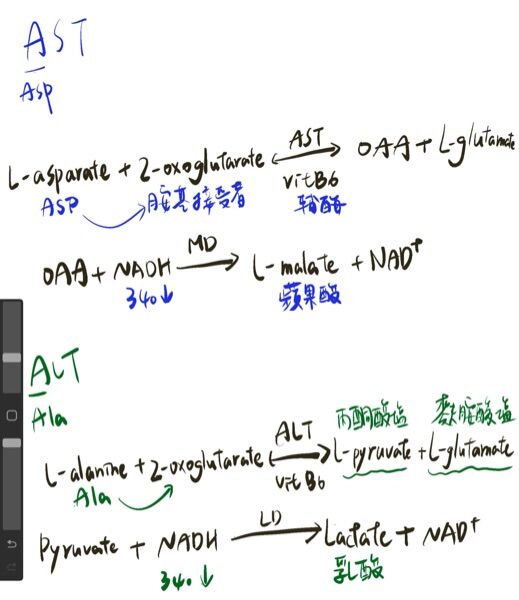 AST
Asp
L-asparate + 2-oxoglutarate ⟷ OAA + L-glutamate
AST
vitB6
ASP 胺基接受者 輔酶
OAA + NADH → L-malate + NAD⁺
MD
340↓ 蘋果酸
ALT
Ala
丙酮酸塩 麩胺酸塩
L-alanine + 2-oxoglutarate ⟷ L-pyruvate + L-glutamate
ALT
vitB6
Ala
Pyruvate + NADH → Lactate + NAD⁺
LD
340↓ 乳酸